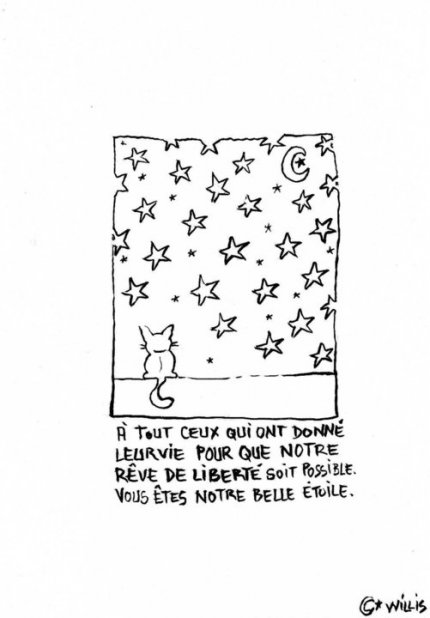 À TOUT CEUX QUI ONT DONNÉ
LEUR VIE POUR QUE NOTRE
RÊVE DE LIBERTÉ SOIT POSSIBLE.
VOUS ÊTES NOTRE BELLE ÉTOILE.
©* WILLIS